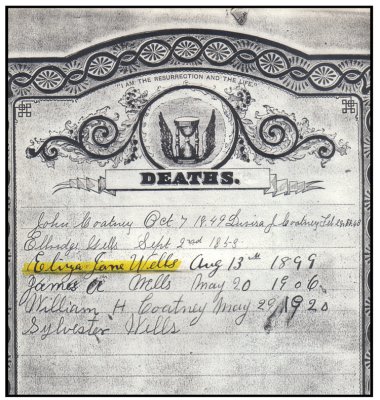 "I AM THE RESURRECTION AND THE LIFE."
DEATHS.
John Coatney Oct 7 1849 Luvisa J. Coatney Feb
Elbridge Wells Sept 2nd
Eliza Jane Wells Aug 13th 1899
James A Wells May 20 1906
William H Coatney May 29, 1920
Sylvester Wells